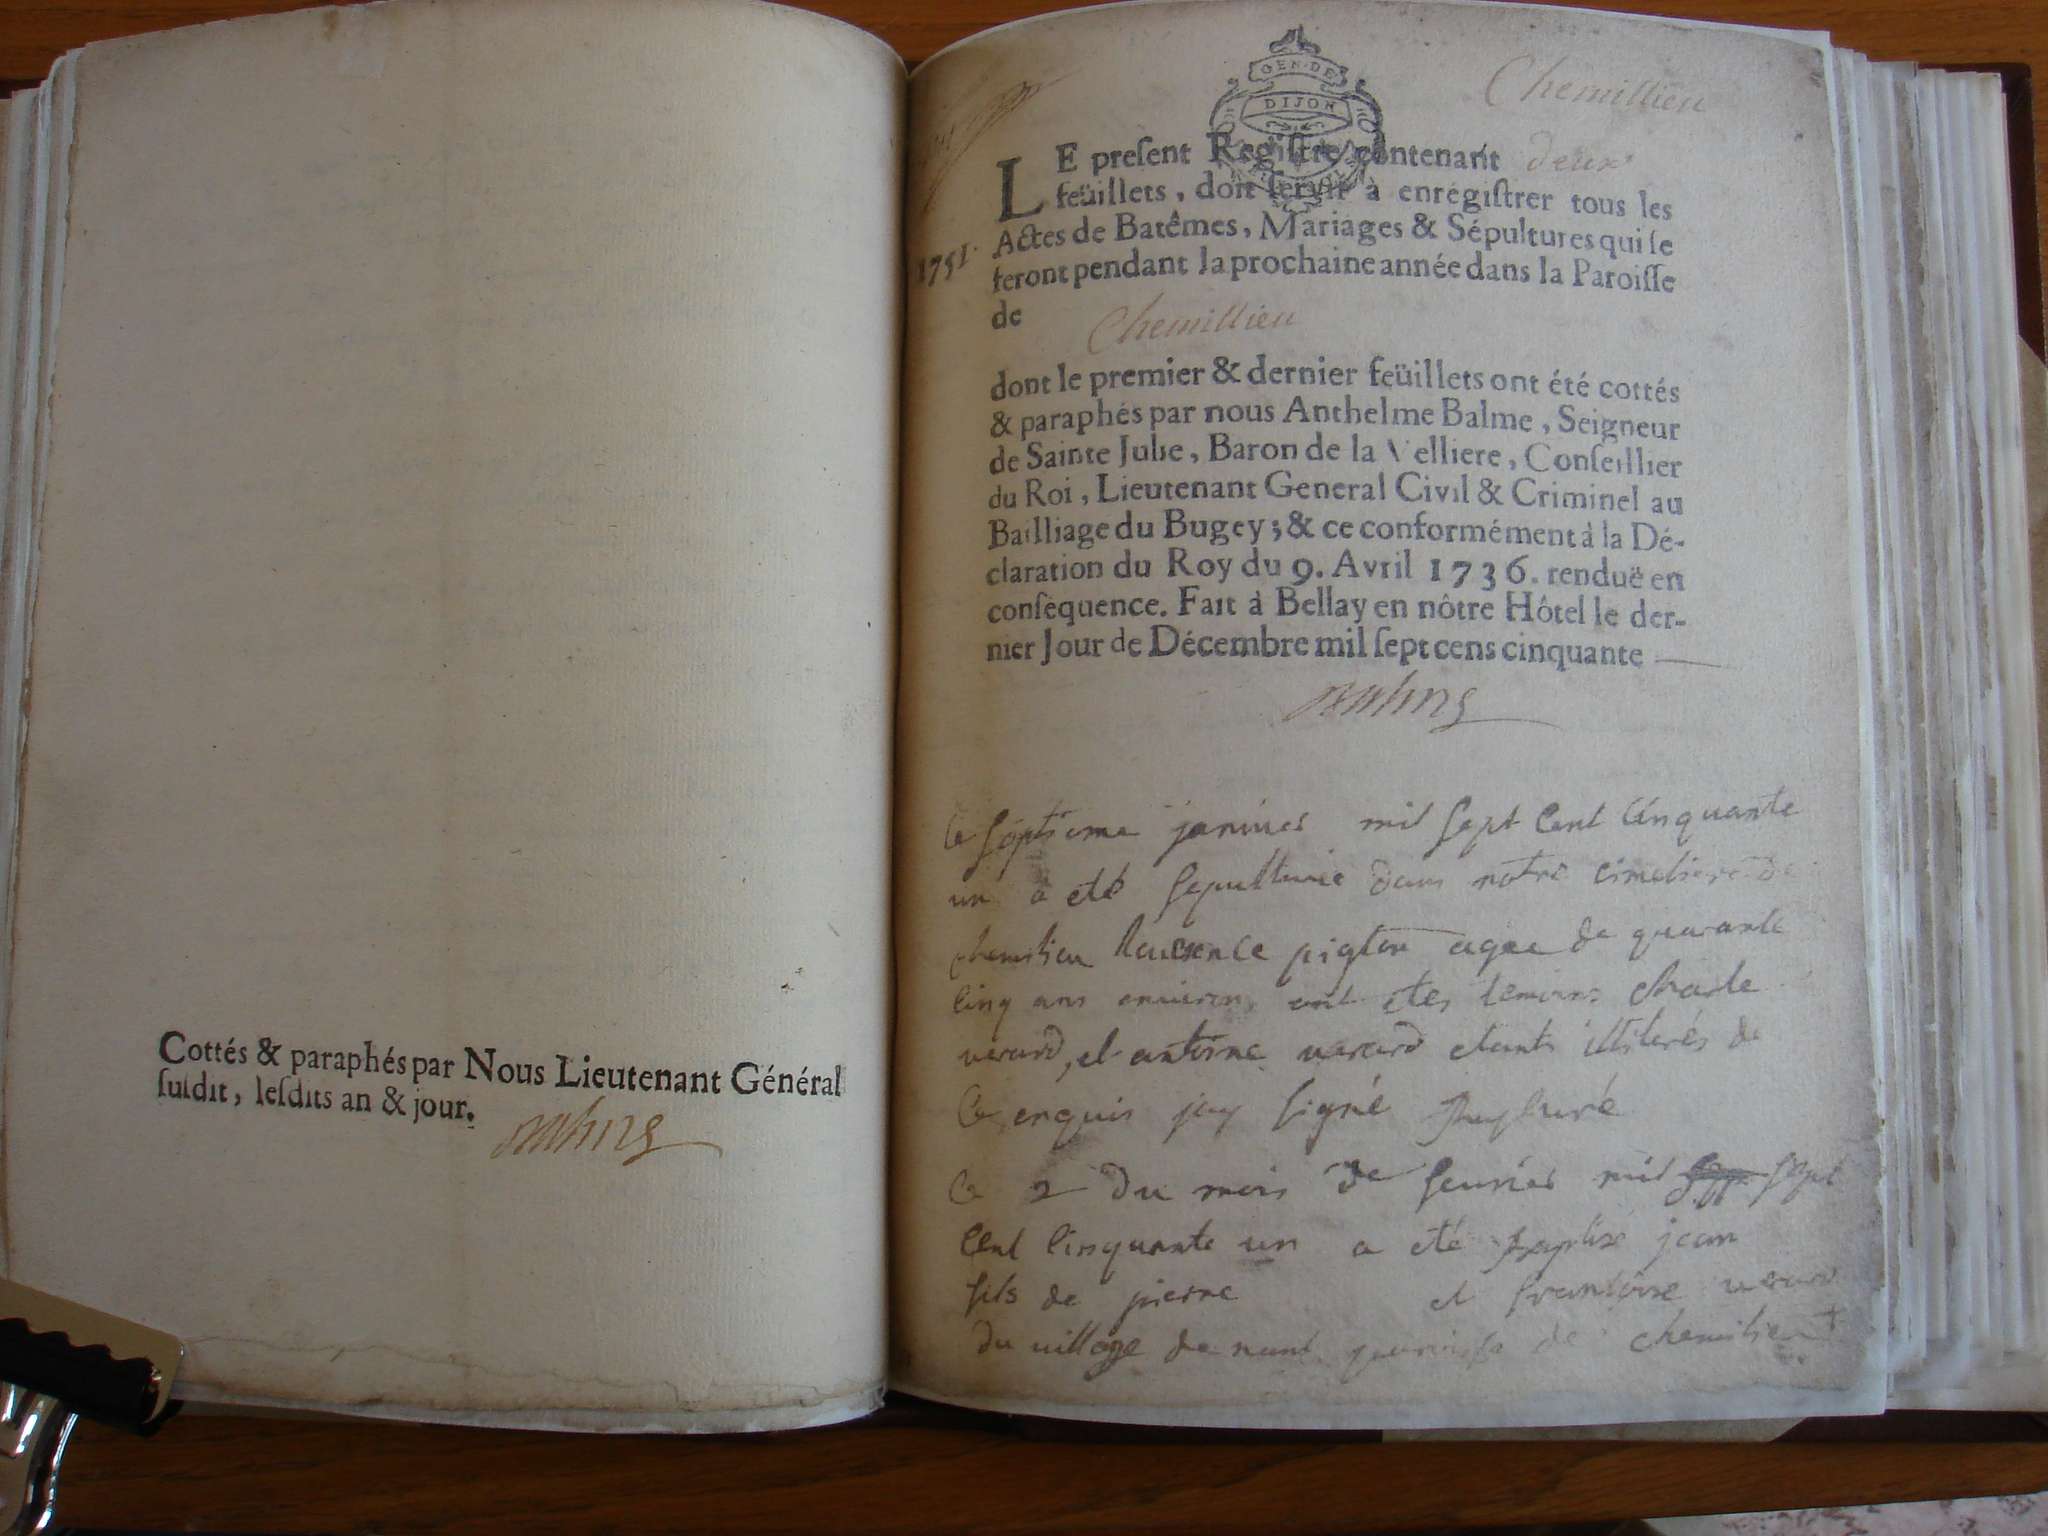 Cottés & paraphés par Nous Lieutenant Général
suſdit, leſdits an & jour.
GEN·DE
DIJON
Chemillieu
LE preſent Regiſtre contenant deux
feüillets, doit ſervir à enrégiſtrer tous les
Actes de Batêmes, Mariages & Sépultures qui ſe
feront pendant la prochaine année dans la Paroiſſe
1751.
de Chemillieu
dont le premier & dernier feüillets ont été cottés
& paraphés par nous Anthelme Balme, Seigneur
de Sainte Julie, Baron de la Velliere, Conſeillier
du Roi, Lieutenant General Civil & Criminel au
Bailliage du Bugey; & ce conformément à la Dé-
claration du Roy du 9. Avril 1736. renduë en
conſéquence. Fait à Bellay en nôtre Hôtel le der-
nier Jour de Décembre mil ſept cens cinquante
Le septieme janvier mil sept cent cinquante
un a eté sepulturée dans notre cimetiere de
chemilieu laurence pigton agee de quarante
cinq ans environ, ont etes temoins charle
verard, et antoine verard etants illiterés de
ce enquis jay signé
Le 2 du mois de fevrier mil sept
cent cinquante un a eté baptisé jean
fils de pierre et francoise verard
du village de nant paroisse de chemilieu